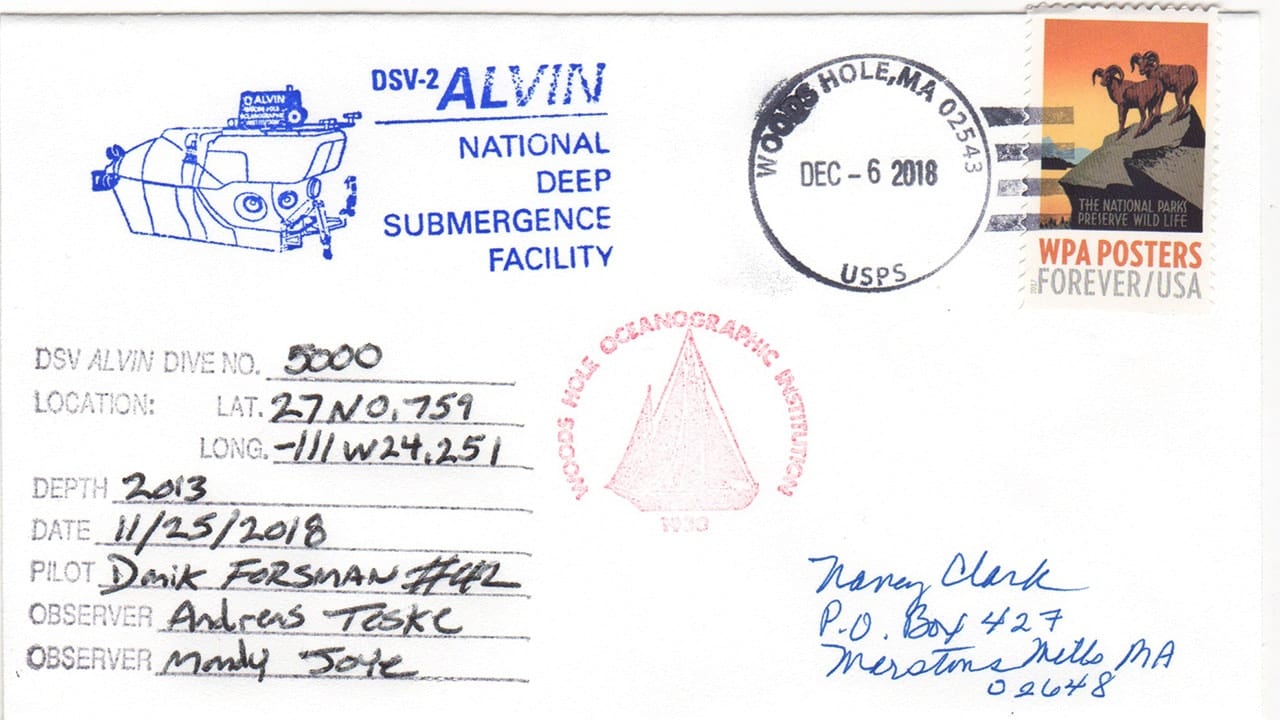 DSV-2 ALVIN
NATIONAL
DEEP
SUBMERGENCE
FACILITY
ALVIN
WOODS HOLE
OCEANOGRAPHIC
INSTITUTION
WOODS HOLE, MA 02543
DEC - 6 2018
USPS
THE NATIONAL PARKS
PRESERVE WILD LIFE
WPA POSTERS
2017
FOREVER/USA
WOODS HOLE OCEANOGRAPHIC INSTITUTION
1930
DSV ALVIN DIVE NO. 5000
LOCATION: LAT. 27N0.759
LONG. -111W24.251
DEPTH 2013
DATE 11/25/2018
PILOT Danik FORSMAN #42
OBSERVER Andreas Teske
OBSERVER Mandy Joye
Nancy Clark
P.O. Box 427
Marstons Mills MA
02648